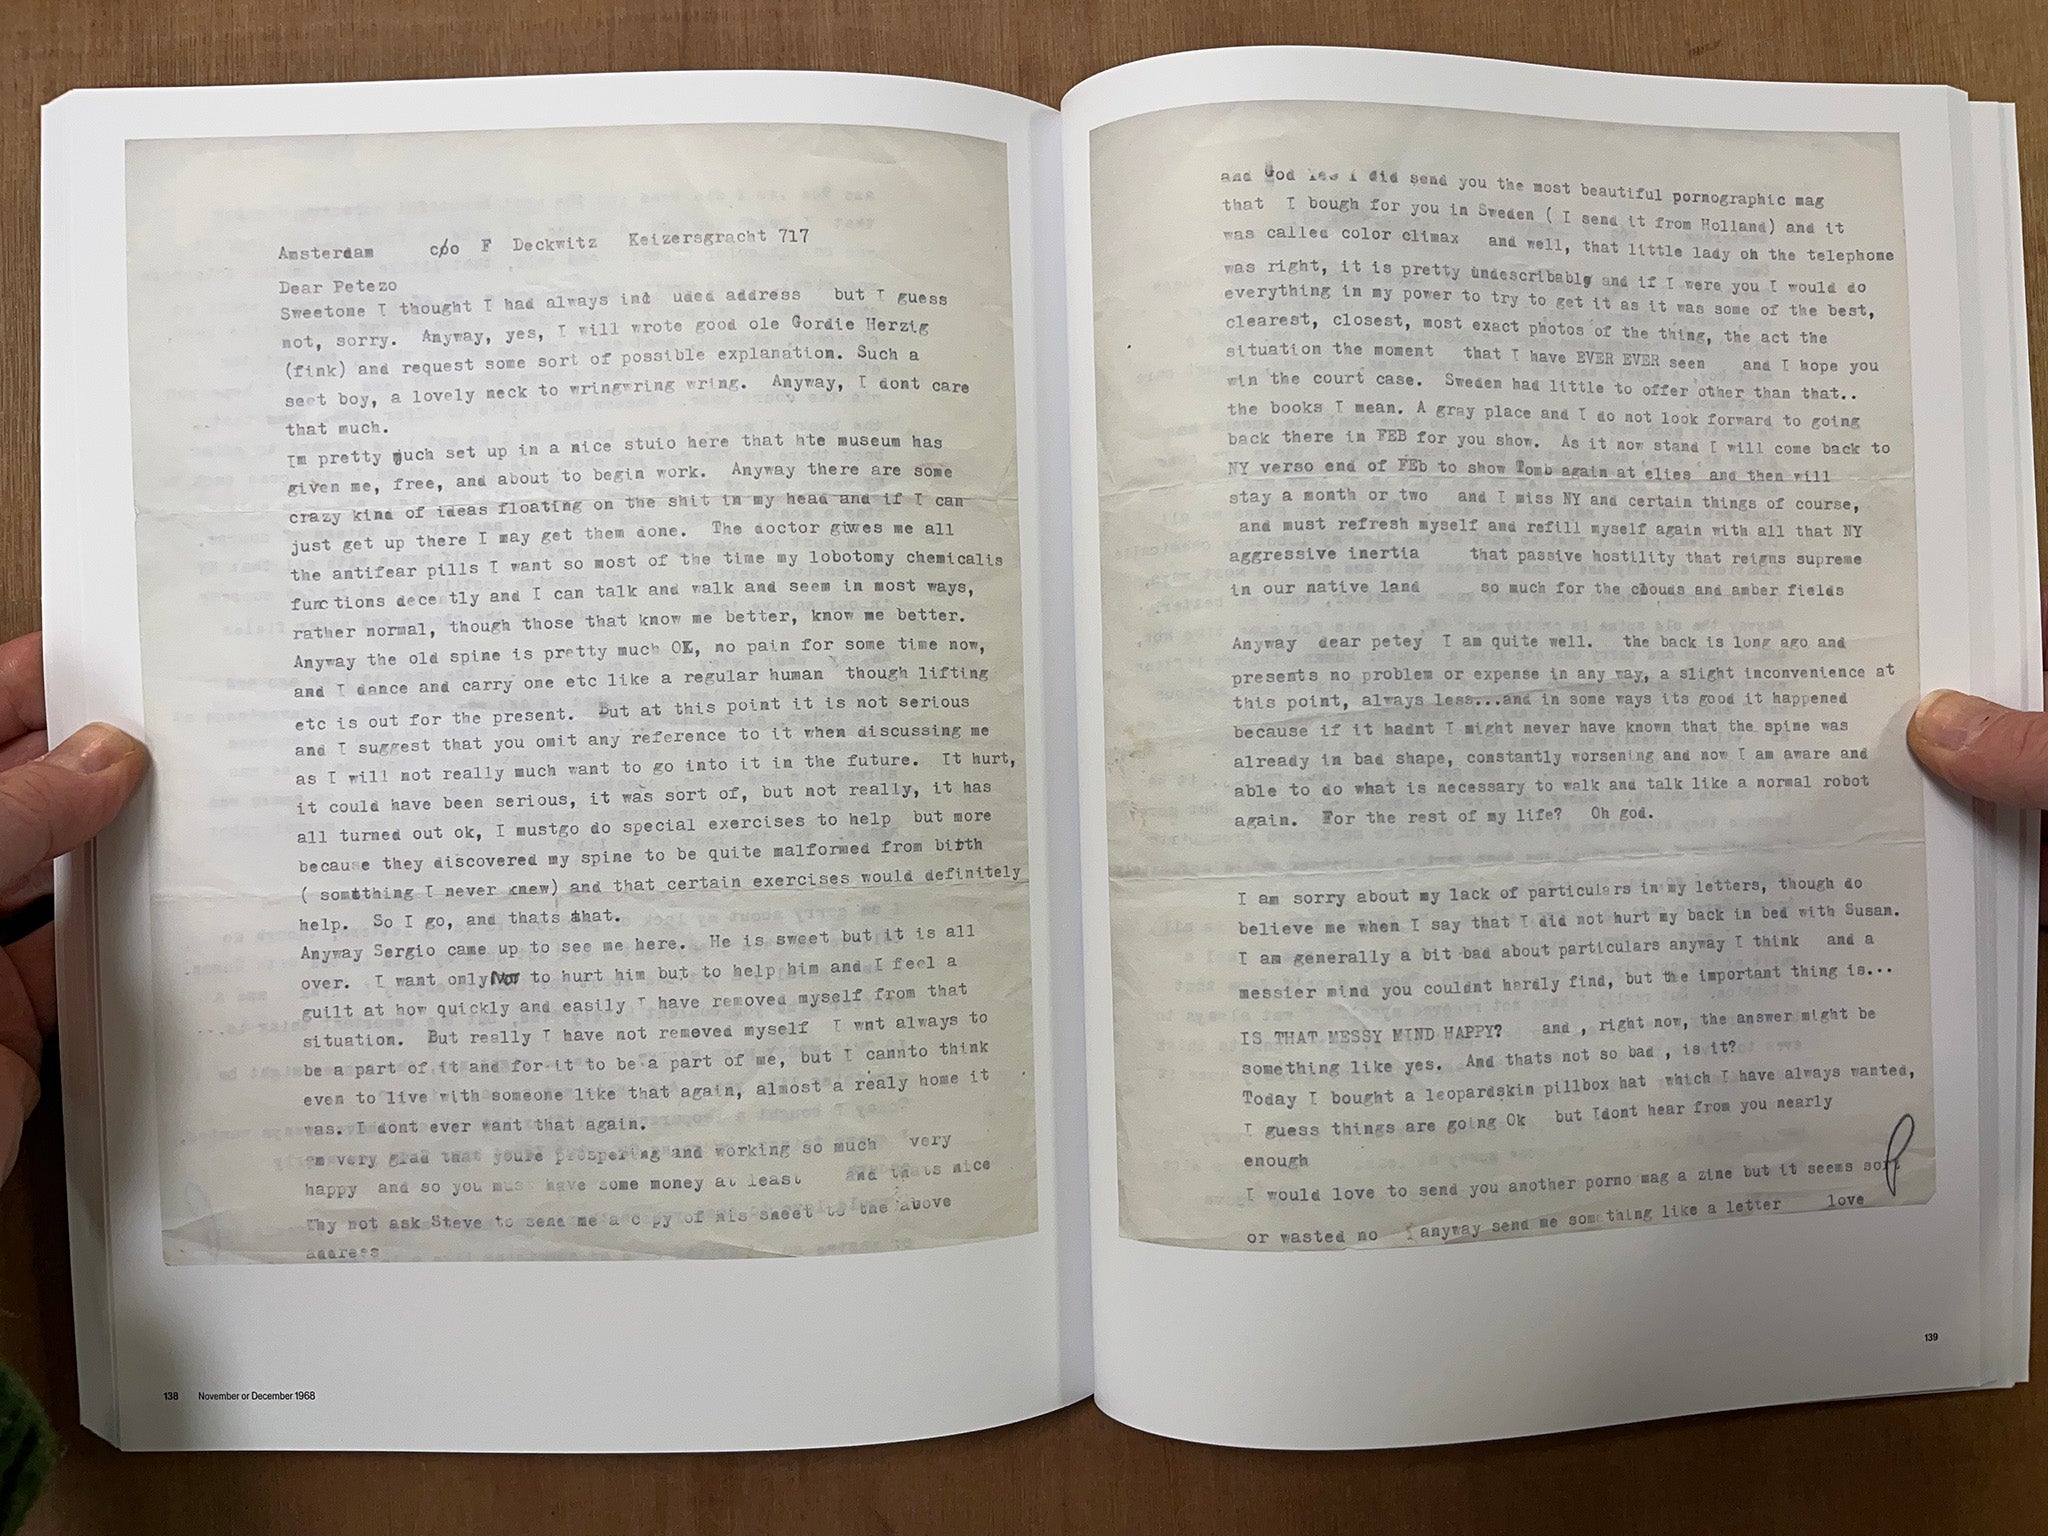 Amsterdam c/o F Deckwitz Keizersgracht 717
Dear Petezo
Sweetone I thought I had always inc uded address but I guess
not, sorry. Anyway, yes, I will wrote good ole Gordie Herzig
(fink) and request some sort of possible explanation. Such a
seet boy, a lovely neck to wringwring wring. Anyway, I dont care
that much.
Im pretty much set up in a nice stuio here that hte museum has
given me, free, and about to begin work. Anyway there are some
crazy kind of ideas floating on the shit in my head and if I can
just get up there I may get them done. The doctor gives me all
the antifear pills I want so most of the time my lobotomy chemicalis
functions dece tly and I can talk and walk and seem in most ways,
rather normal, though those that know me better, know me better.
Anyway the old spine is pretty much OK, no pain for some time now,
and I dance and carry one etc like a regular human though lifting
etc is out for the present. But at this point it is not serious
and I suggest that you omit any reference to it when discussing me
as I will not really much want to go into it in the future. It hurt,
it could have been serious, it was sort of, but not really, it has
all turned out ok, I mustgo do special exercises to help but more
because they discovered my spine to be quite malformed from birth
( something I never knew) and that certain exercises would definitely
help. So I go, and thats that.
Anyway Sergio came up to see me here. He is sweet but it is all
over. I want only NOT to hurt him but to help him and I feel a
guilt at how quickly and easily I have removed myself from that
situation. But really I have not removed myself I wnt always to
be a part of it and for it to be a part of me, but I cannto think
even to live with someone like that again, almost a realy home it
was. I dont ever want that again.
Im very glad that youre prospering and working so much very
happy and so you must have some money at least and thats nice
Why not ask Steve to send me a c py of his sheet to the above
address
138 November or December 1968
and God yes I did send you the most beautiful pornographic mag
that I bough for you in Sweden ( I send it from Holland) and it
was called color climax and well, that little lady on the telephone
was right, it is pretty undescribably and if I were you I would do
everything in my power to try to get it as it was some of the best,
clearest, closest, most exact photos of the thing, the act the
situation the moment that I have EVER EVER seen and I hope you
win the court case. Sweden had little to offer other than that..
the books I mean. A gray place and I do not look forward to going
back there in FEB for you show. As it now stand I will come back to
NY verso end of FEb to show Tomb again at elies and then will
stay a month or two and I miss NY and certain things of course,
and must refresh myself and refill myself again with all that NY
aggressive inertia that passive hostility that reigns supreme
in our native land so much for the clouds and amber fields
Anyway dear petey I am quite well. the back is long ago and
presents no problem or expense in any way, a slight inconvenience at
this point, always less...and in some ways its good it happened
because if it hadnt I might never have known that the spine was
already in bad shape, constantly worsening and now I am aware and
able to do what is necessary to walk and talk like a normal robot
again. For the rest of my life? Oh god.
I am sorry about my lack of particulars in my letters, though do
believe me when I say that I did not hurt my back in bed with Susan.
I am generally a bit bad about particulars anyway I think and a
messier mind you couldnt hardly find, but the important thing is...
IS THAT MESSY MIND HAPPY? and , right now, the answer might be
something like yes. And thats not so bad , is it?
Today I bought a leopardskin pillbox hat which I have always wanted,
I guess things are going Ok but Idont hear from you nearly
enough
I would love to send you another porno mag a zine but it seems sort
or wasted no anyway send me something like a letter love
P
139